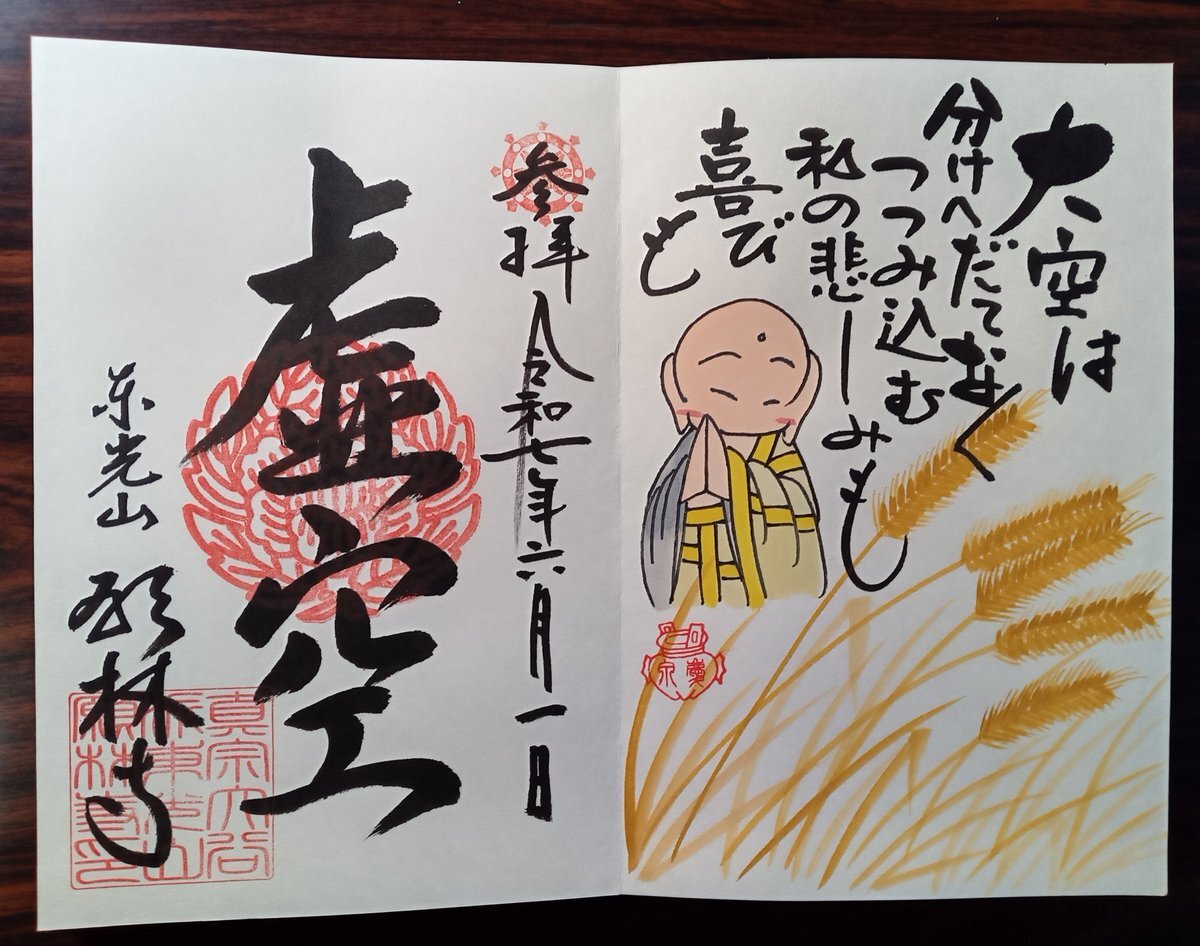 大空は
分けへだてなく
つつみ込む
私の悲しみも
喜びも
参拝 令和七年六月一日
虚空
東光山 願林寺
真宗大谷
派東光山
願林寺印